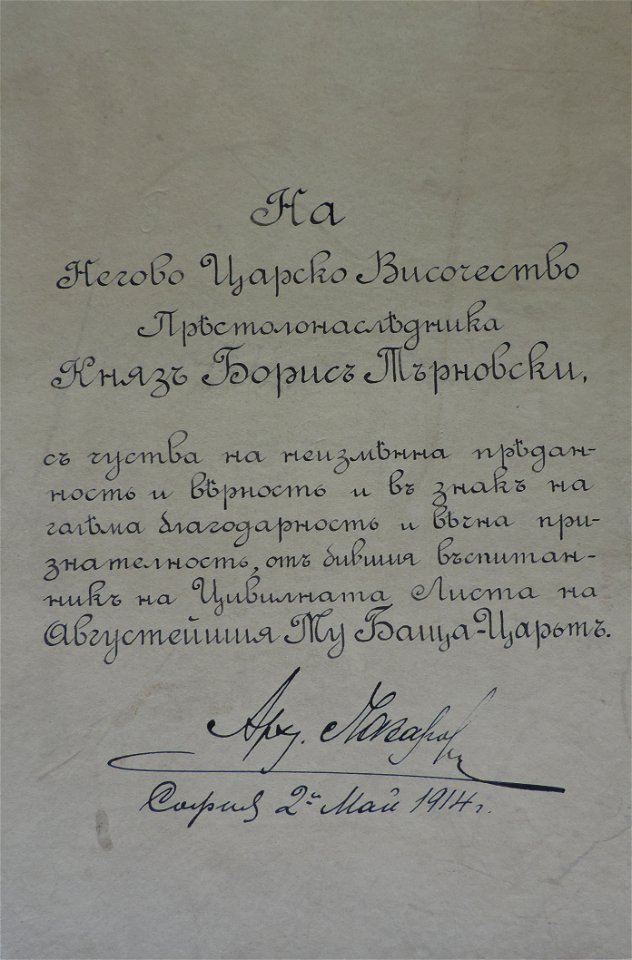 На
Негово Царско Височество
Прѣстолонаслѣдника
Князъ Борисъ Търновски,
съ чуства на неизмѣнна прѣдан-
ность и вѣрность и въ знакъ на
галѣма благодарность и вѣчна при-
знателность, отъ бившия въспитан-
никъ на Цивилната Листа на
Августейшия Му Баща-Царьтъ.
Арх.
София 2й Май 1914 г.